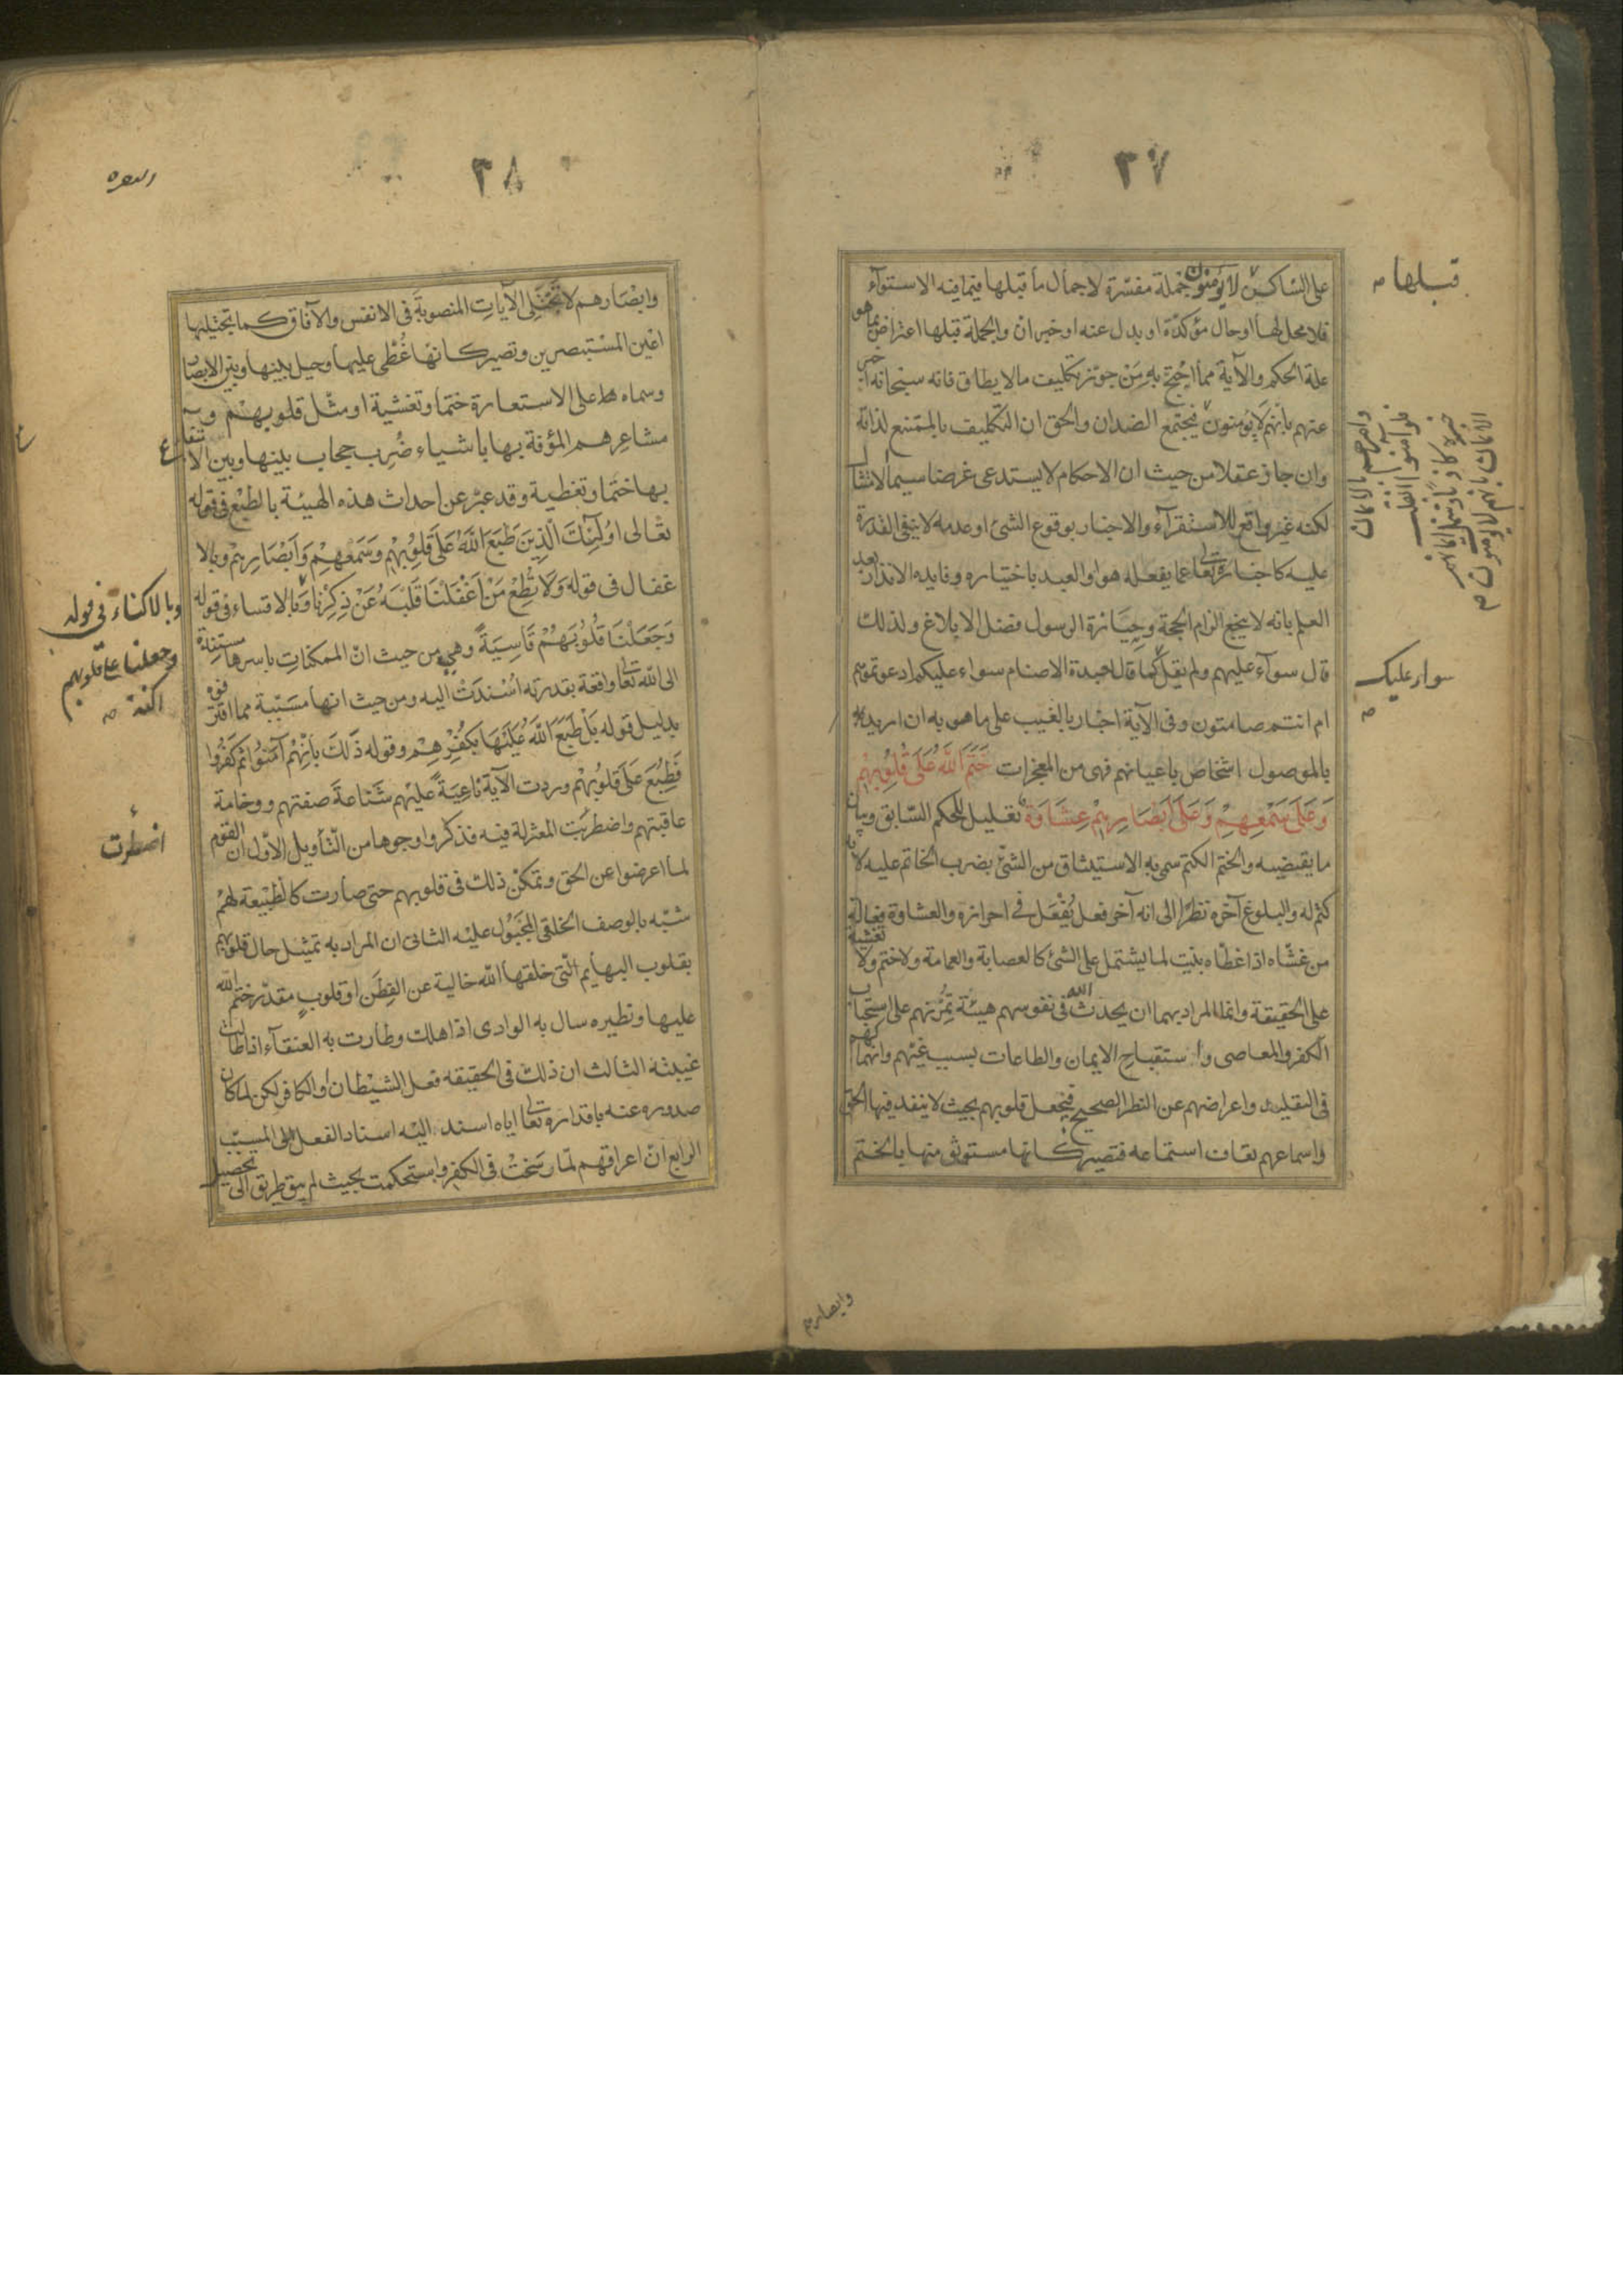 ٣٧
على الساكن لا يؤمنون جملة مفسّرة لاجمال ما قبلها فيما فيه الاستوآء
فلا محل لها او حال مؤكدة او بدل عنه او خبر ان والجملة قبلها اعتراض بما هو
علة الحكم والآية مما احتج به من جوّز تكليف ما لا يطاق فانه سبحانه اخبر
عنهم بأنهم لا يؤمنون فيجتمع الضدان والحق ان التكليف بالممتنع لذاته
وان جاز عقلا من حيث ان الاحكام لا يستدعى غرضا سيما الامتثال
لكنه غير واقع للاستقرآء والاخبار بوقوع الشئ او عدمه لا ينفى القدرة
عليه كاخباره تعالى عما يفعله هو او العبد باختياره وفايده الانذار بعد
العلم بانه لا ينجع الزام الحجة وحيازة الرسول فضل الابلاغ ولذلك
قال سوآء عليهم ولم يقل كما قال لعبدة الاصنام سواء عليكم ادعوتموهم
ام انتم صامتون وفى الآية اخبار بالغيب على ما هو به ان اريد
بالموصول اشخاص باعيانهم فهى من المعجزات خَتَمَ اللَّهُ عَلَى قُلُوبِهِمْ
وَعَلَى سَمْعِهِمْ وَعَلَى أَبْصَارِهِمْ غِشَاوَةٌ تعليل للحكم السّابق وبيان
ما يقتضيه والختم الكتم سمى به الاستيثاق من الشئ بضرب الخاتم عليه لانه
كتم له والبلوغ آخره نظرا الى انه آخر فعل يُفْعَل فى احرازه والغشاوة فعالة
من غشّاه اذا غطّاه بنيت لما يشتمل على الشئ كالعصابة والعمامة ولا ختم ولا تغشية
على الحقيقة وانما المراد بهما ان يحدث الله فى نفوسهم هيئة تمرّنهم على استحباب
الكفر والمعاصى واستقباح الايمان والطاعات بسبب غيّهم وانهماكهم
فى التقليد واعراضهم عن النظر الصحيح فيجعل قلوبهم بحيث لا ينفد فيها الحق
واسماعهم تعاف استماعه فتصير كانها مستوثق منها بالختم
وابصارهم
قبلها
سواء عليكم
٣٨
البقره
وابْصَارهم لا تجتلى الآيات المنصوبة فى الانفس والآفاق كما يجتليها
اعين المستبصرين وتصير كانها غُطّى عليها وحيل بينها وبين الابصار
وسماه على الاستعارة ختما وتغشية او مثّل قلوبهم و
مشاعرهم المؤفة بها بأشياء ضُرِب حجاب بينها وبين الانتفاع
بها ختما وتغطية وقد عبّر عن احداث هذه الهيئة بالطبع فى قوله
تعالى اولئك الَّذِينَ طَبَعَ اللَّهُ عَلَى قُلُوبِهِمْ وَسَمْعِهِمْ وَأَبْصَارِهِمْ وبالا
غفال فى قوله وَلَا تُطِعْ مَنْ أَغْفَلْنَا قَلْبَهُ عَنْ ذِكْرِنَا وبالاقساء فى قوله
وَجَعَلْنَا قُلُوبَهُمْ قَاسِيَةً وهى من حيث انّ الممكنات باسرها مستندة
الى الله تعالى واقعة بقدرته اسْندَتْ اليه ومن حيث انها مسبّبة مما اقترفوه
بدليل قوله بَلْ طَبَعَ اللَّهُ عَلَيْهَا بِكُفْرِهِمْ وقوله ذَلِكَ بِأَنَّهُمْ آمَنُوا ثُمَّ كَفَرُوا
فَطُبِعَ عَلَى قُلُوبِهِمْ وردت الآية ناعِيَةً عليهم شَنَاعةَ صفتهم ووخامة
عاقبتهم واضطربت المعتزلة فيه فذكروا وجوها من التأويل الاوّل ان القوم
لما اعرضوا عن الحق وتمكن ذلك فى قلوبهم حتى صارت كالطبيعة لهم
شبّه بالوصف الخلقى المجبول عليه الثانى ان المراد به تمثيل حال قلوبهم
بقلوب البهايم الّتى خلقها الله خالية عن الفِطَن او قلوبٍ مقدّر ختم الله
عليها ونظيره سال به الوادى اذا هلك وطارت به العنقآء اذا طالت
غيبته الثالث ان ذلك فى الحقيقه فعل الشيطان او الكافر لكن لما كان
صدوره عنه باقداره تعالى اياه اسند اليه اسناد الفعل الى المسبّب
الرابع انّ اعراقهم لمّا رسَخَتْ فى الكفر واستحكمت بحيث لم يبق طريق الى تحصيل
وبالاكناء فى قوله
وجعلنا على قلوبهم
اكنة
اضطرت